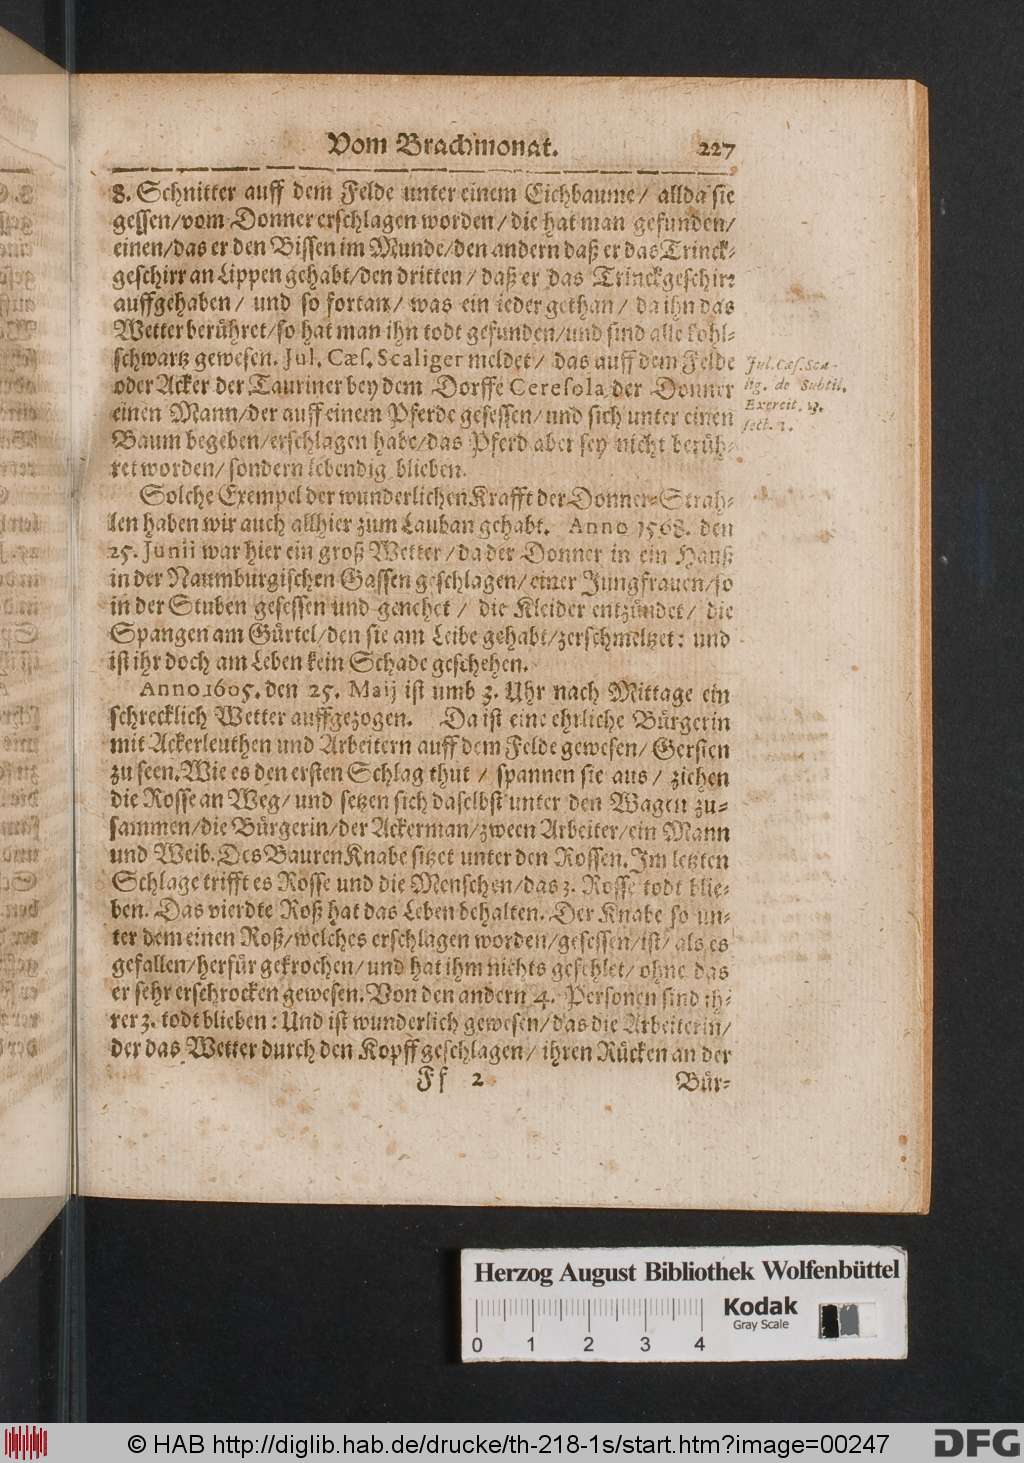 Vom Brachmonat. 227
8. Schnitter auff dem Felde unter einem Eichbaume/ allda sie
gessen/vom Donner erschlagen worden/ die hat man gefunden/
einen/das er den Bissen im Munde/den andern daß er das Trinck-
geschirr an Lippen gehabt/den dritten/ daß er das Trinckgeschirr
auffgehaben/ und so fortan/ was ein ieder gethan/ da ihn das
Wetter berühret/so hat man ihn todt gefunden/und sind alle kohl-
schwartz gewesen. Jul. Cæs. Scaliger meldet/ das auff dem Felde
oder Acker der Tauriner bey dem Dorffe Ceresola der Donner
einen Mann/der auff einem Pferde gesessen/und sich unter einen
Baum begeben/erschlagen habe/das Pferd aber sey nicht berüh-
ret worden/sondern lebendig blieben.
Jul. Cæs. Sca-
lig. de Subtil.
Exercit. 13.
sect. 1.
Solche Exempel der wunderlichen Krafft der Donner-Strah-
len haben wir auch allhier zum Lauban gehabt. Anno 1568. den
25. Junii war hier ein groß Wetter/da der Donner in ein Hauß
in der Naumburgischen Gassen geschlagen/einer Jungfrauen/so
in der Stuben gesessen und genehet/ die Kleider entzündet/ die
Spangen am Gürtel/den sie am Leibe gehabt/zerschmeltzet: und
ist ihr doch am Leben kein Schade geschehen.
Anno 1605. den 25. Maij ist umb 3. Uhr nach Mittage ein
schrecklich Wetter auffgezogen. Da ist eine ehrliche Bürgerin
mit Ackerleuthen und Arbeitern auff dem Felde gewesen/ Gersten
zu seen. Wie es den ersten Schlag thut/ spannen sie aus/ ziehen
die Rosse an Weg/und setzen sich daselbst unter den Wagen zu-
sammen/die Bürgerin/der Ackerman/zween Arbeiter/ein Mann
und Weib. Des Bauren Knabe sitzet unter den Rossen. Im letzten
Schlage trifft es Rosse und die Menschen/das 3. Rosse todt blie-
ben. Das vierdte Roß hat das Leben behalten. Der Knabe so un-
ter dem einen Roß/welches erschlagen worden/gesessen/ist/ als es
gefallen/herfür gekrochen/und hat ihm nichts gefehlet/ohne das
er sehr erschrocken gewesen. Von den andern 4. Personen sind ih-
rer 3. todt blieben: Und ist wunderlich gewesen/das die Arbeiterin/
der das Wetter durch den Kopff geschlagen/ ihren Rücken an der
Ff 2 Bür-
Herzog August Bibliothek Wolfenbüttel
Kodak
Gray Scale
0 1 2 3 4
© HAB http://diglib.hab.de/drucke/th-218-1s/start.htm?image=00247
DFG